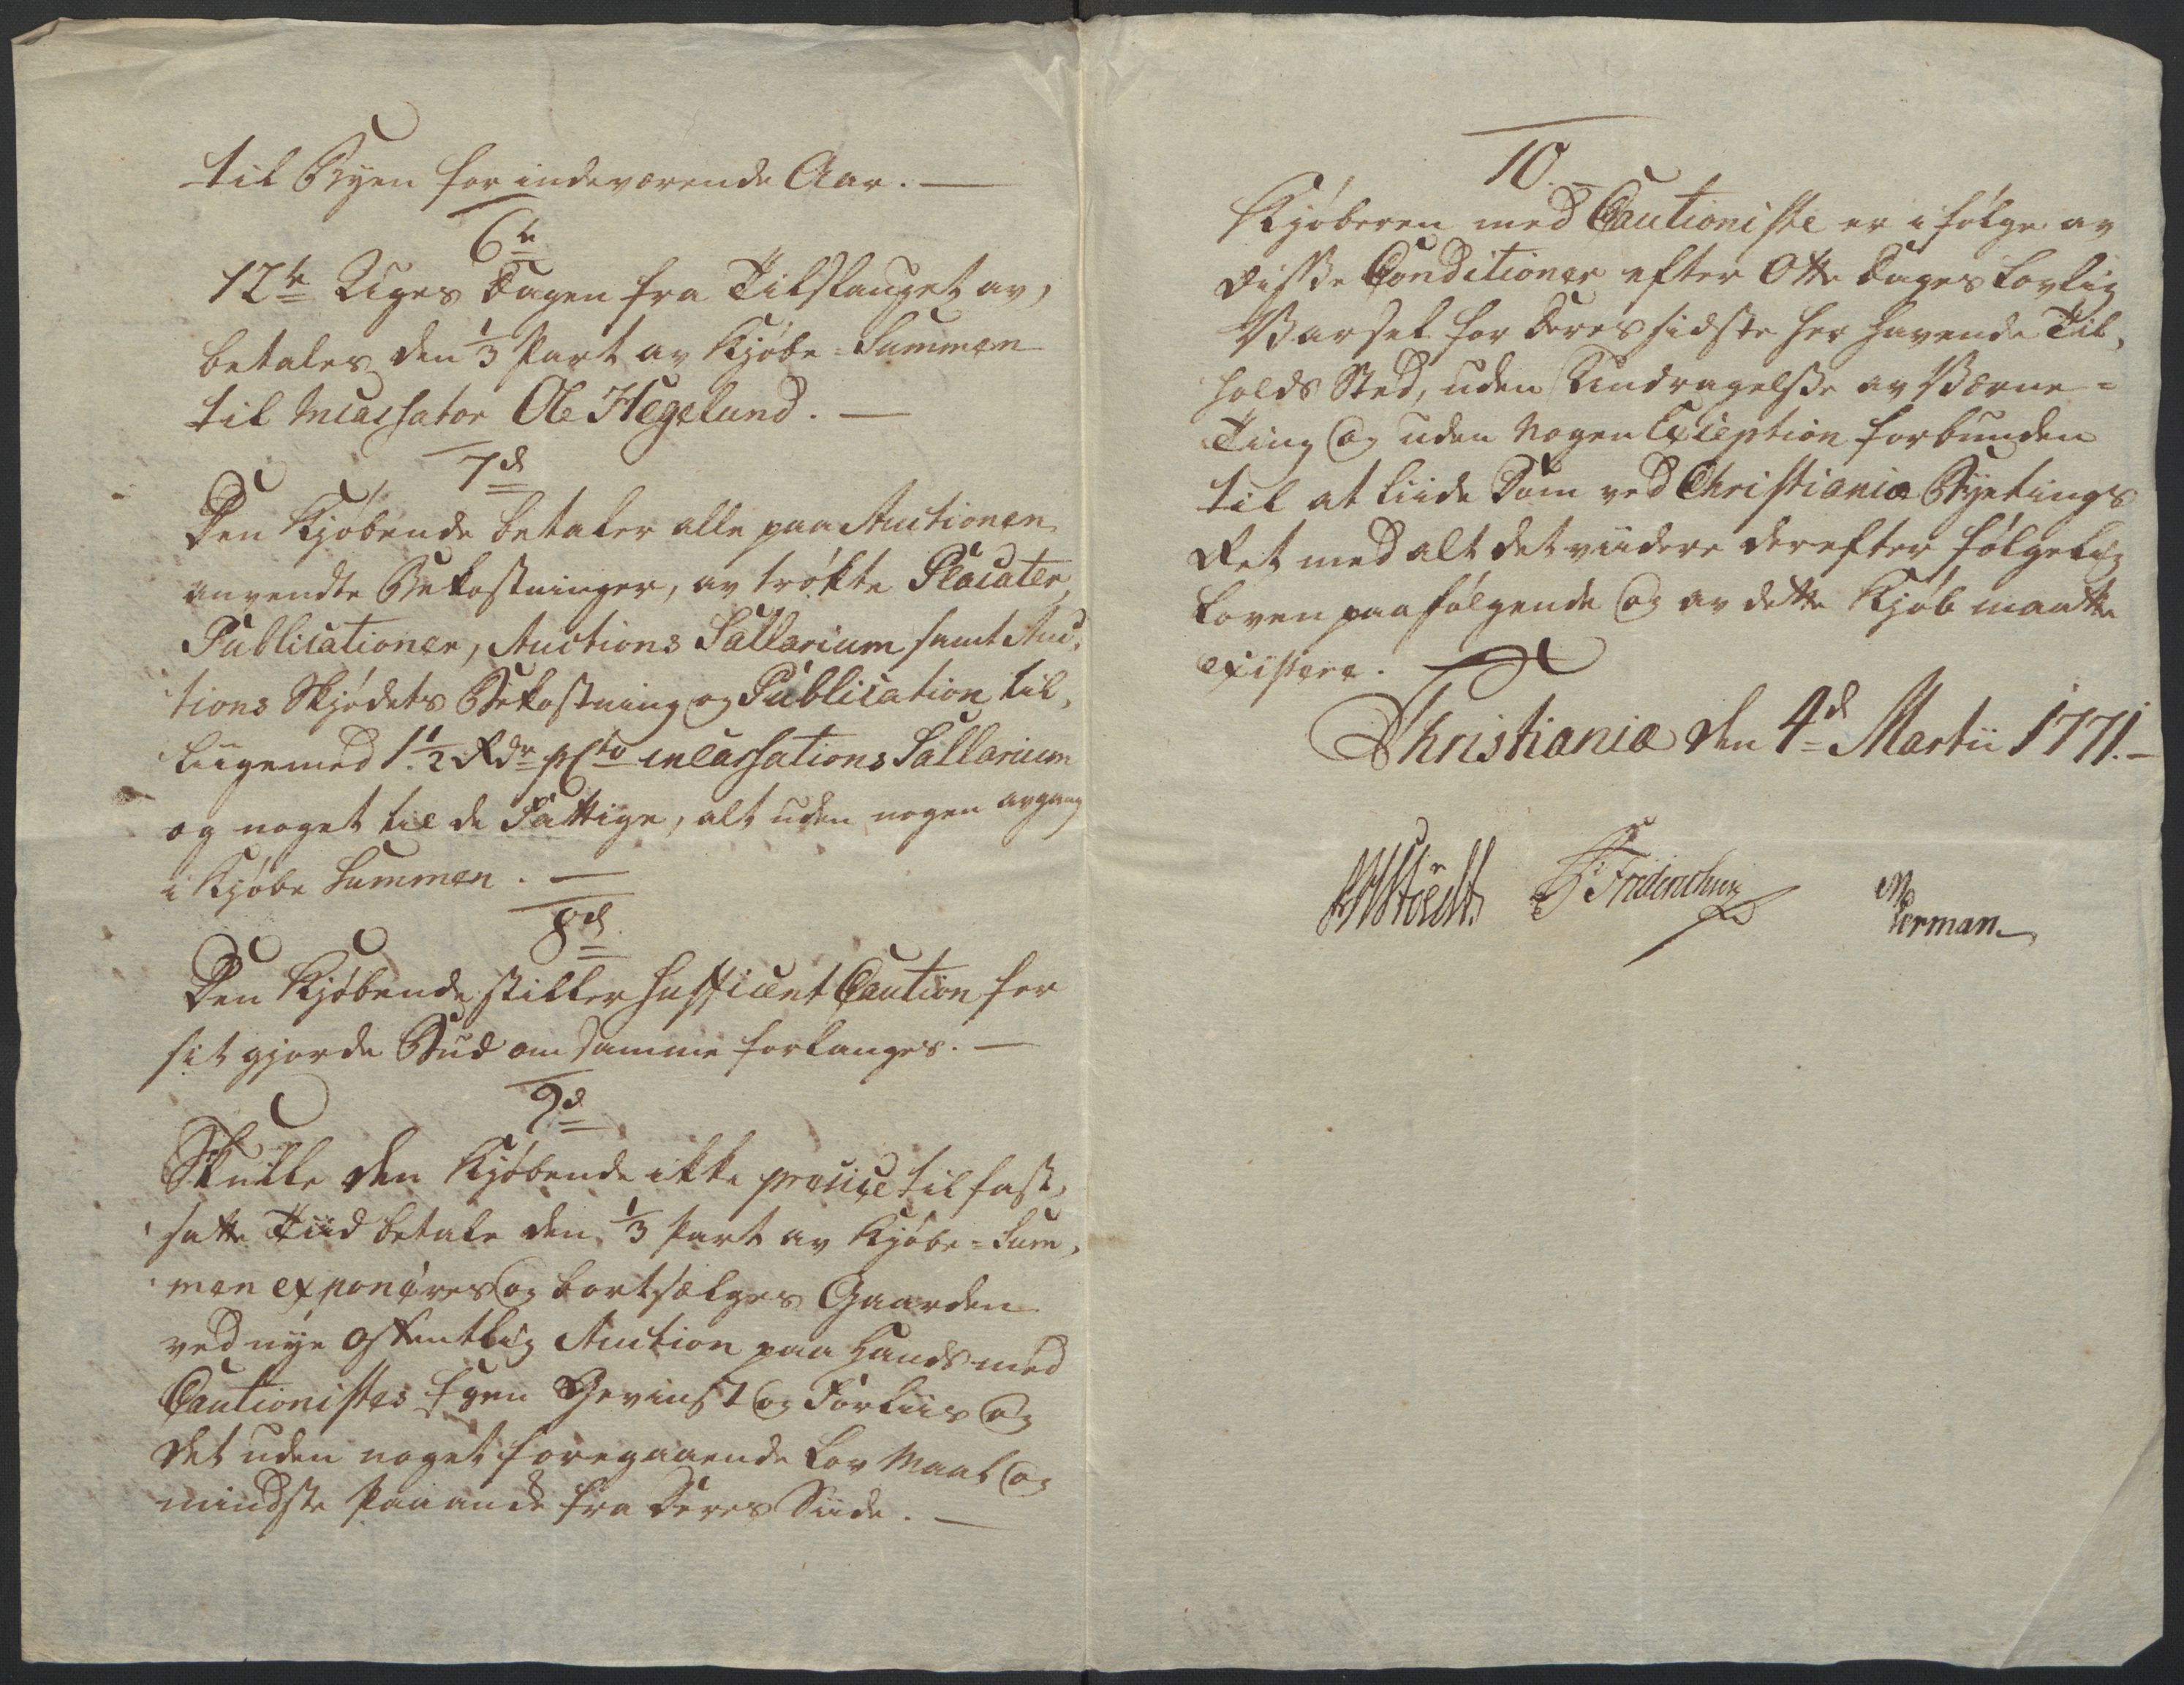 til Byen for indeværende Aar. —
6te
12te Uges Dagen fra Tilslauget av,
betales den 1/3 Part av Kjøbe-Summen
til Incassator Ole Hegelund. —
7d
Den Kjøbende betaler alle paa Auctionen
anvendte Bekostninger, av trøkte Placater,
Publicationer, Auctions Sallarium samt Auc-
tions Skjødets Bekostning og Publication til,
liigemed 1 1/2 Rdr pCto incassations Sallarium
og noget til de Fattige, alt uden nogen avgang
i Kjøbe Summen. —
8d
Den Kjøbende stiller sufficient Caution for
sit gjorde Bud om samme forlanges. —
9d
Skulle den Kjøbende ikke precise til fast,
satte Tiid betale den 1/3 Part av Kjøbe-Sum,
men exponeres og bortsælges Gaarden
ved nye offentlig Auction paa Hands med
Cautionistes Egen Gevinst og Forliis og
det uden noget foregaaende Lov Maal og
mindste Paaanke fra Deres Siide. —
10. —
Kjøberen med Cautioniste er i følge av
disse Conditioner efter Otte Dages Lovlig
Varsel for Deres sidste her havende Til,
holds Sted, uden Undragelse av Værne-
Ting og uden Nogen Exception forbunden
til at liide Dom ved Christiania Byetings
Ret med alt det viidere derefter følgelig
Loven paafølgende og av dette Kjøb maatte
existere.
Christiania den 4d Martii 1771. —
Friderichsen